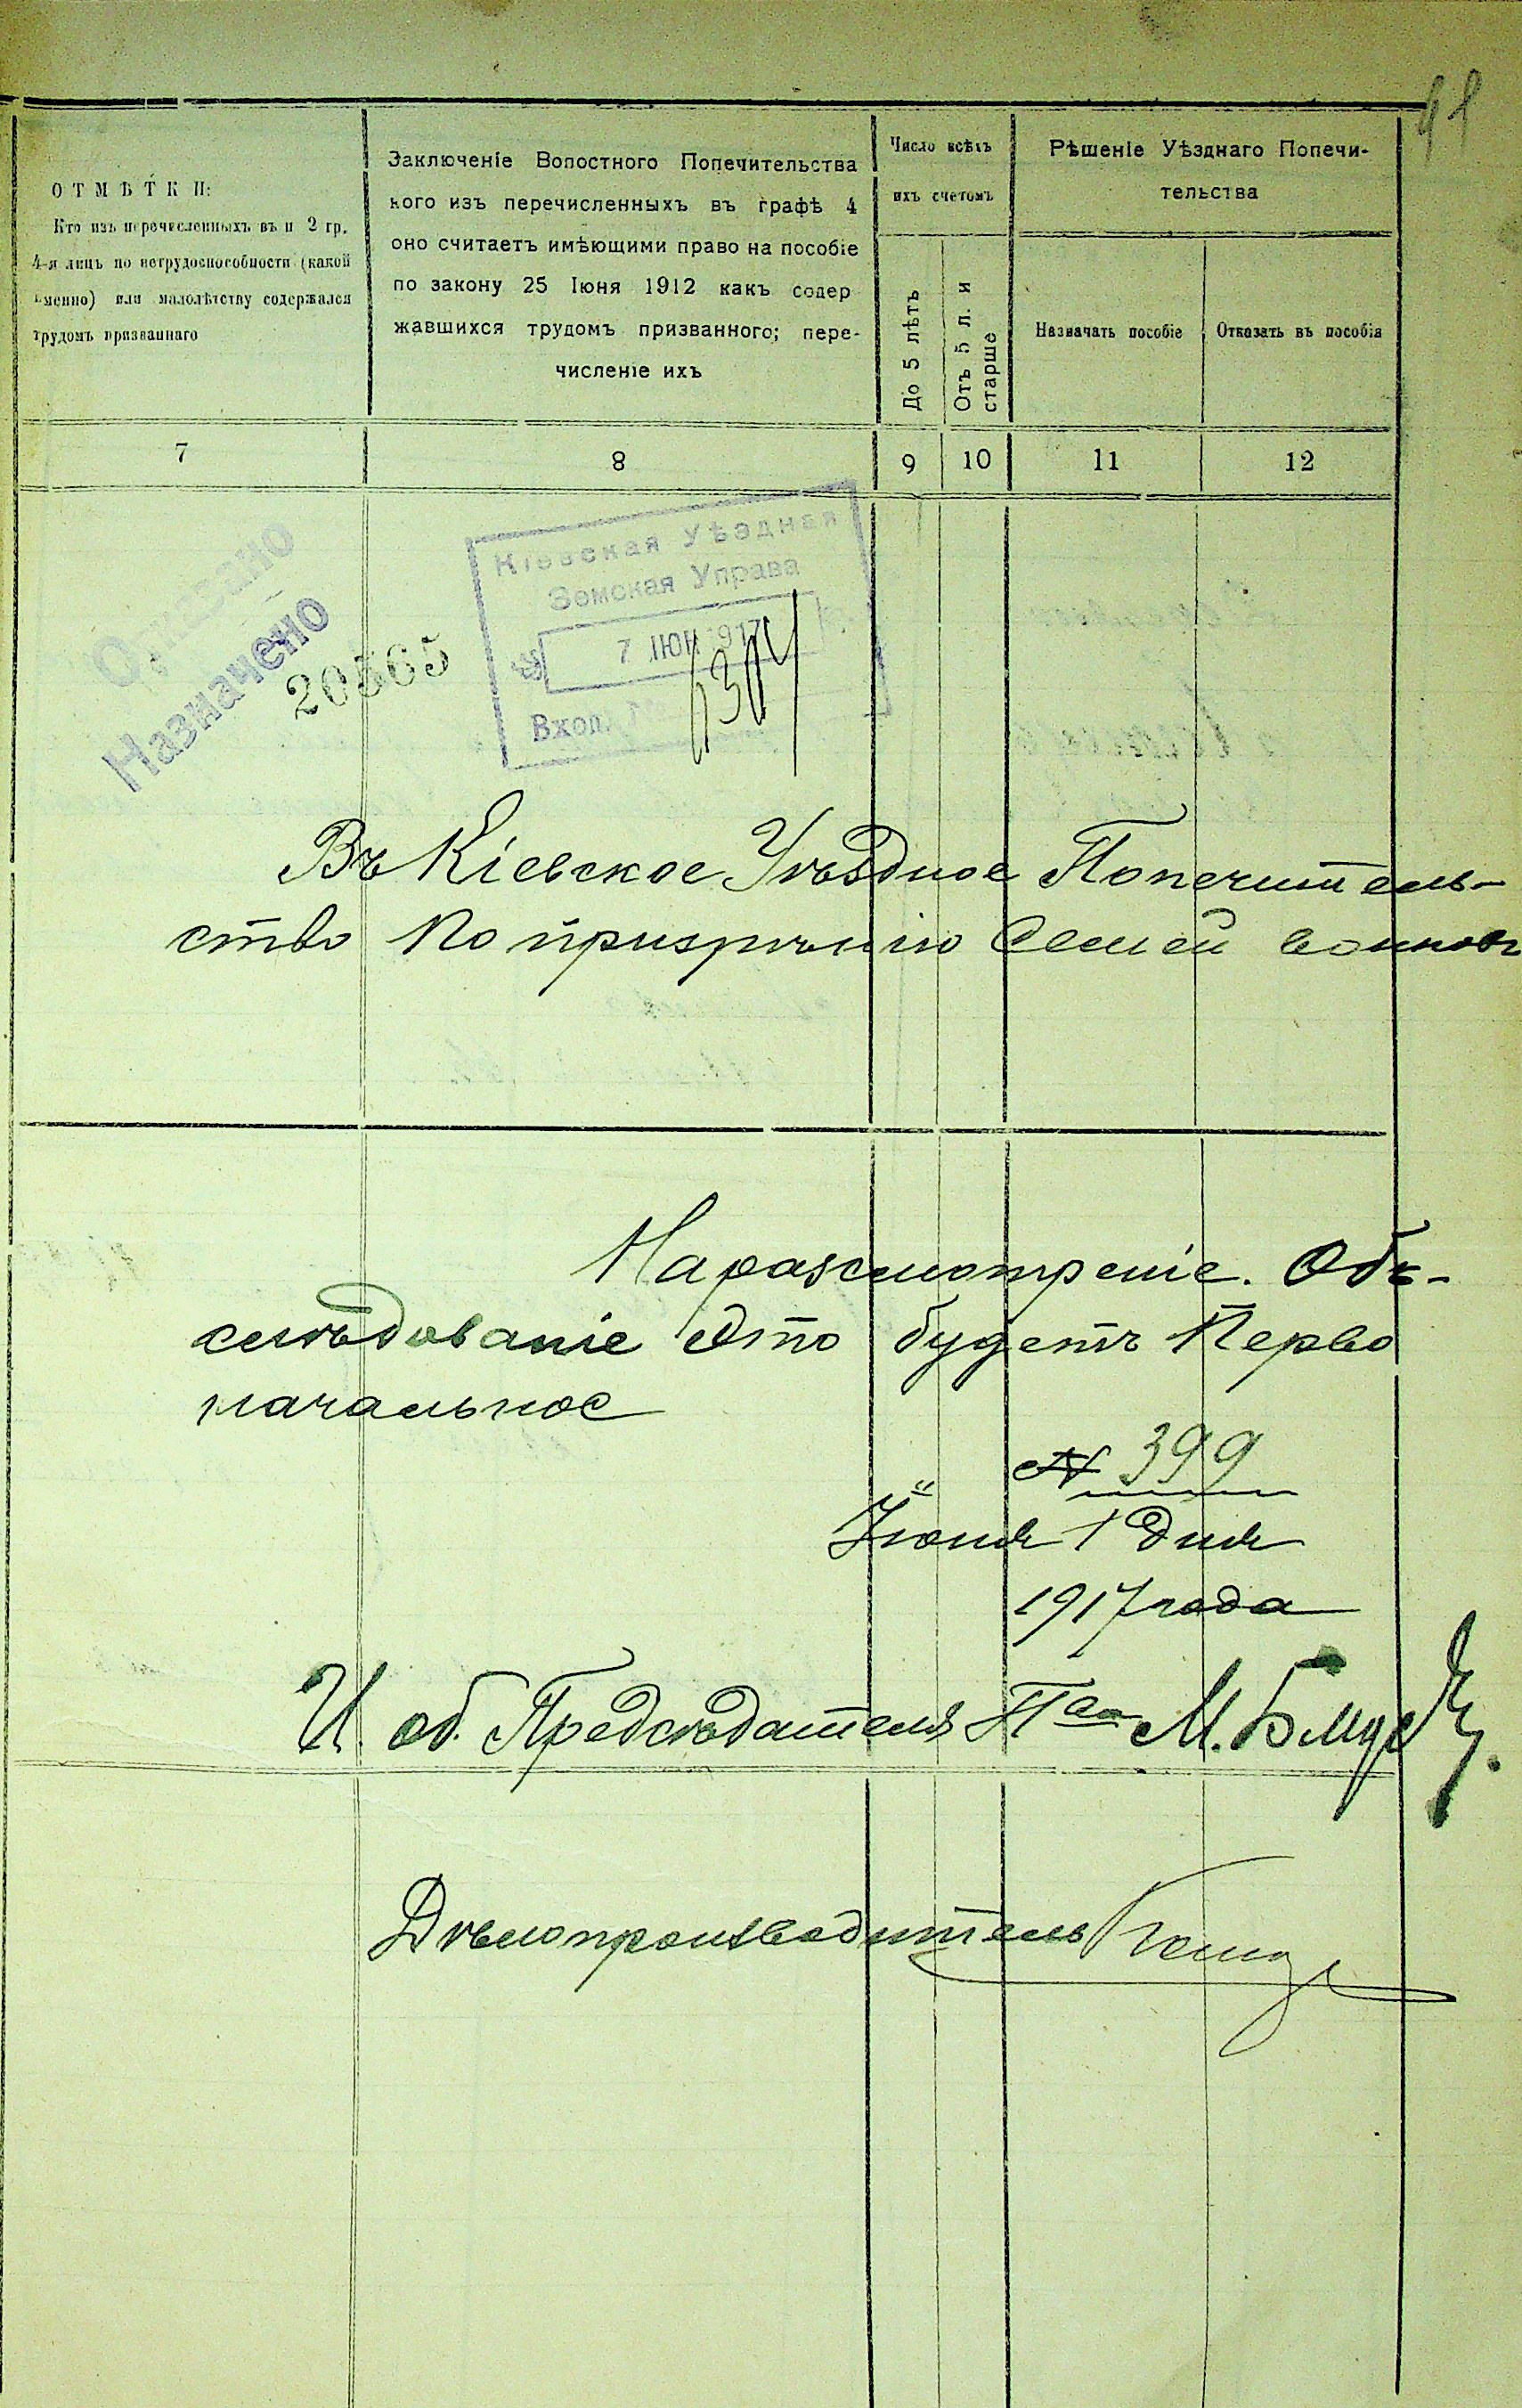 41
ОТМѢТКИ:
Кто изъ перечисленныхъ въ и 2 гр.
4-я лицъ по нетрудоспособности (какой
именно) или малолѣтству содержался
трудомъ призваннаго
Заключеніе Волостного Попечительства
кого изъ перечисленныхъ въ графѣ 4
оно считаетъ имѣющими право на пособіе
по закону 25 Іюня 1912 какъ содер
жавшихся трудомъ призванного; пере-
численіе ихъ
Число всѣхъ
ихъ счетомъ
До 5 лѣтъ
Отъ 5 л. и
старше
Рѣшеніе Уѣзднаго Попечи-
тельства
Назначать пособіе
Отказать въ пособія
7 8 9 10 11 12
Назначено
20565
Кіевская Уѣздная
Земская Управа
7 ІЮН 917
Вход.
Въ Кіевское Уѣздное Попечитель-
ство по призрѣнію Семей воиновъ
На разсмотреніе. Обс-
слѣдованіе Это будетъ Перво
начальное
№ 399
Іюня 1 дня
1917 года
И. об. Предсѣдателя П-ва М.
Дѣлопроизводитель